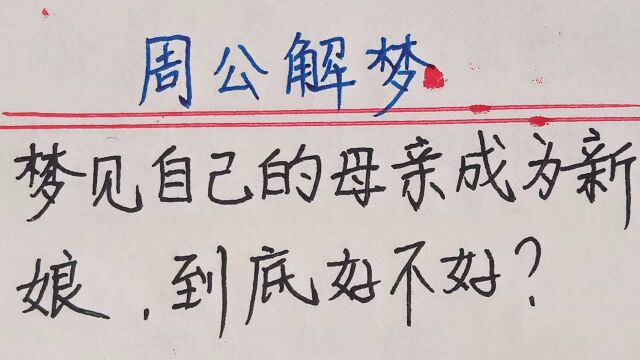 周公解梦
梦见自己的母亲成为新
娘，到底好不好？